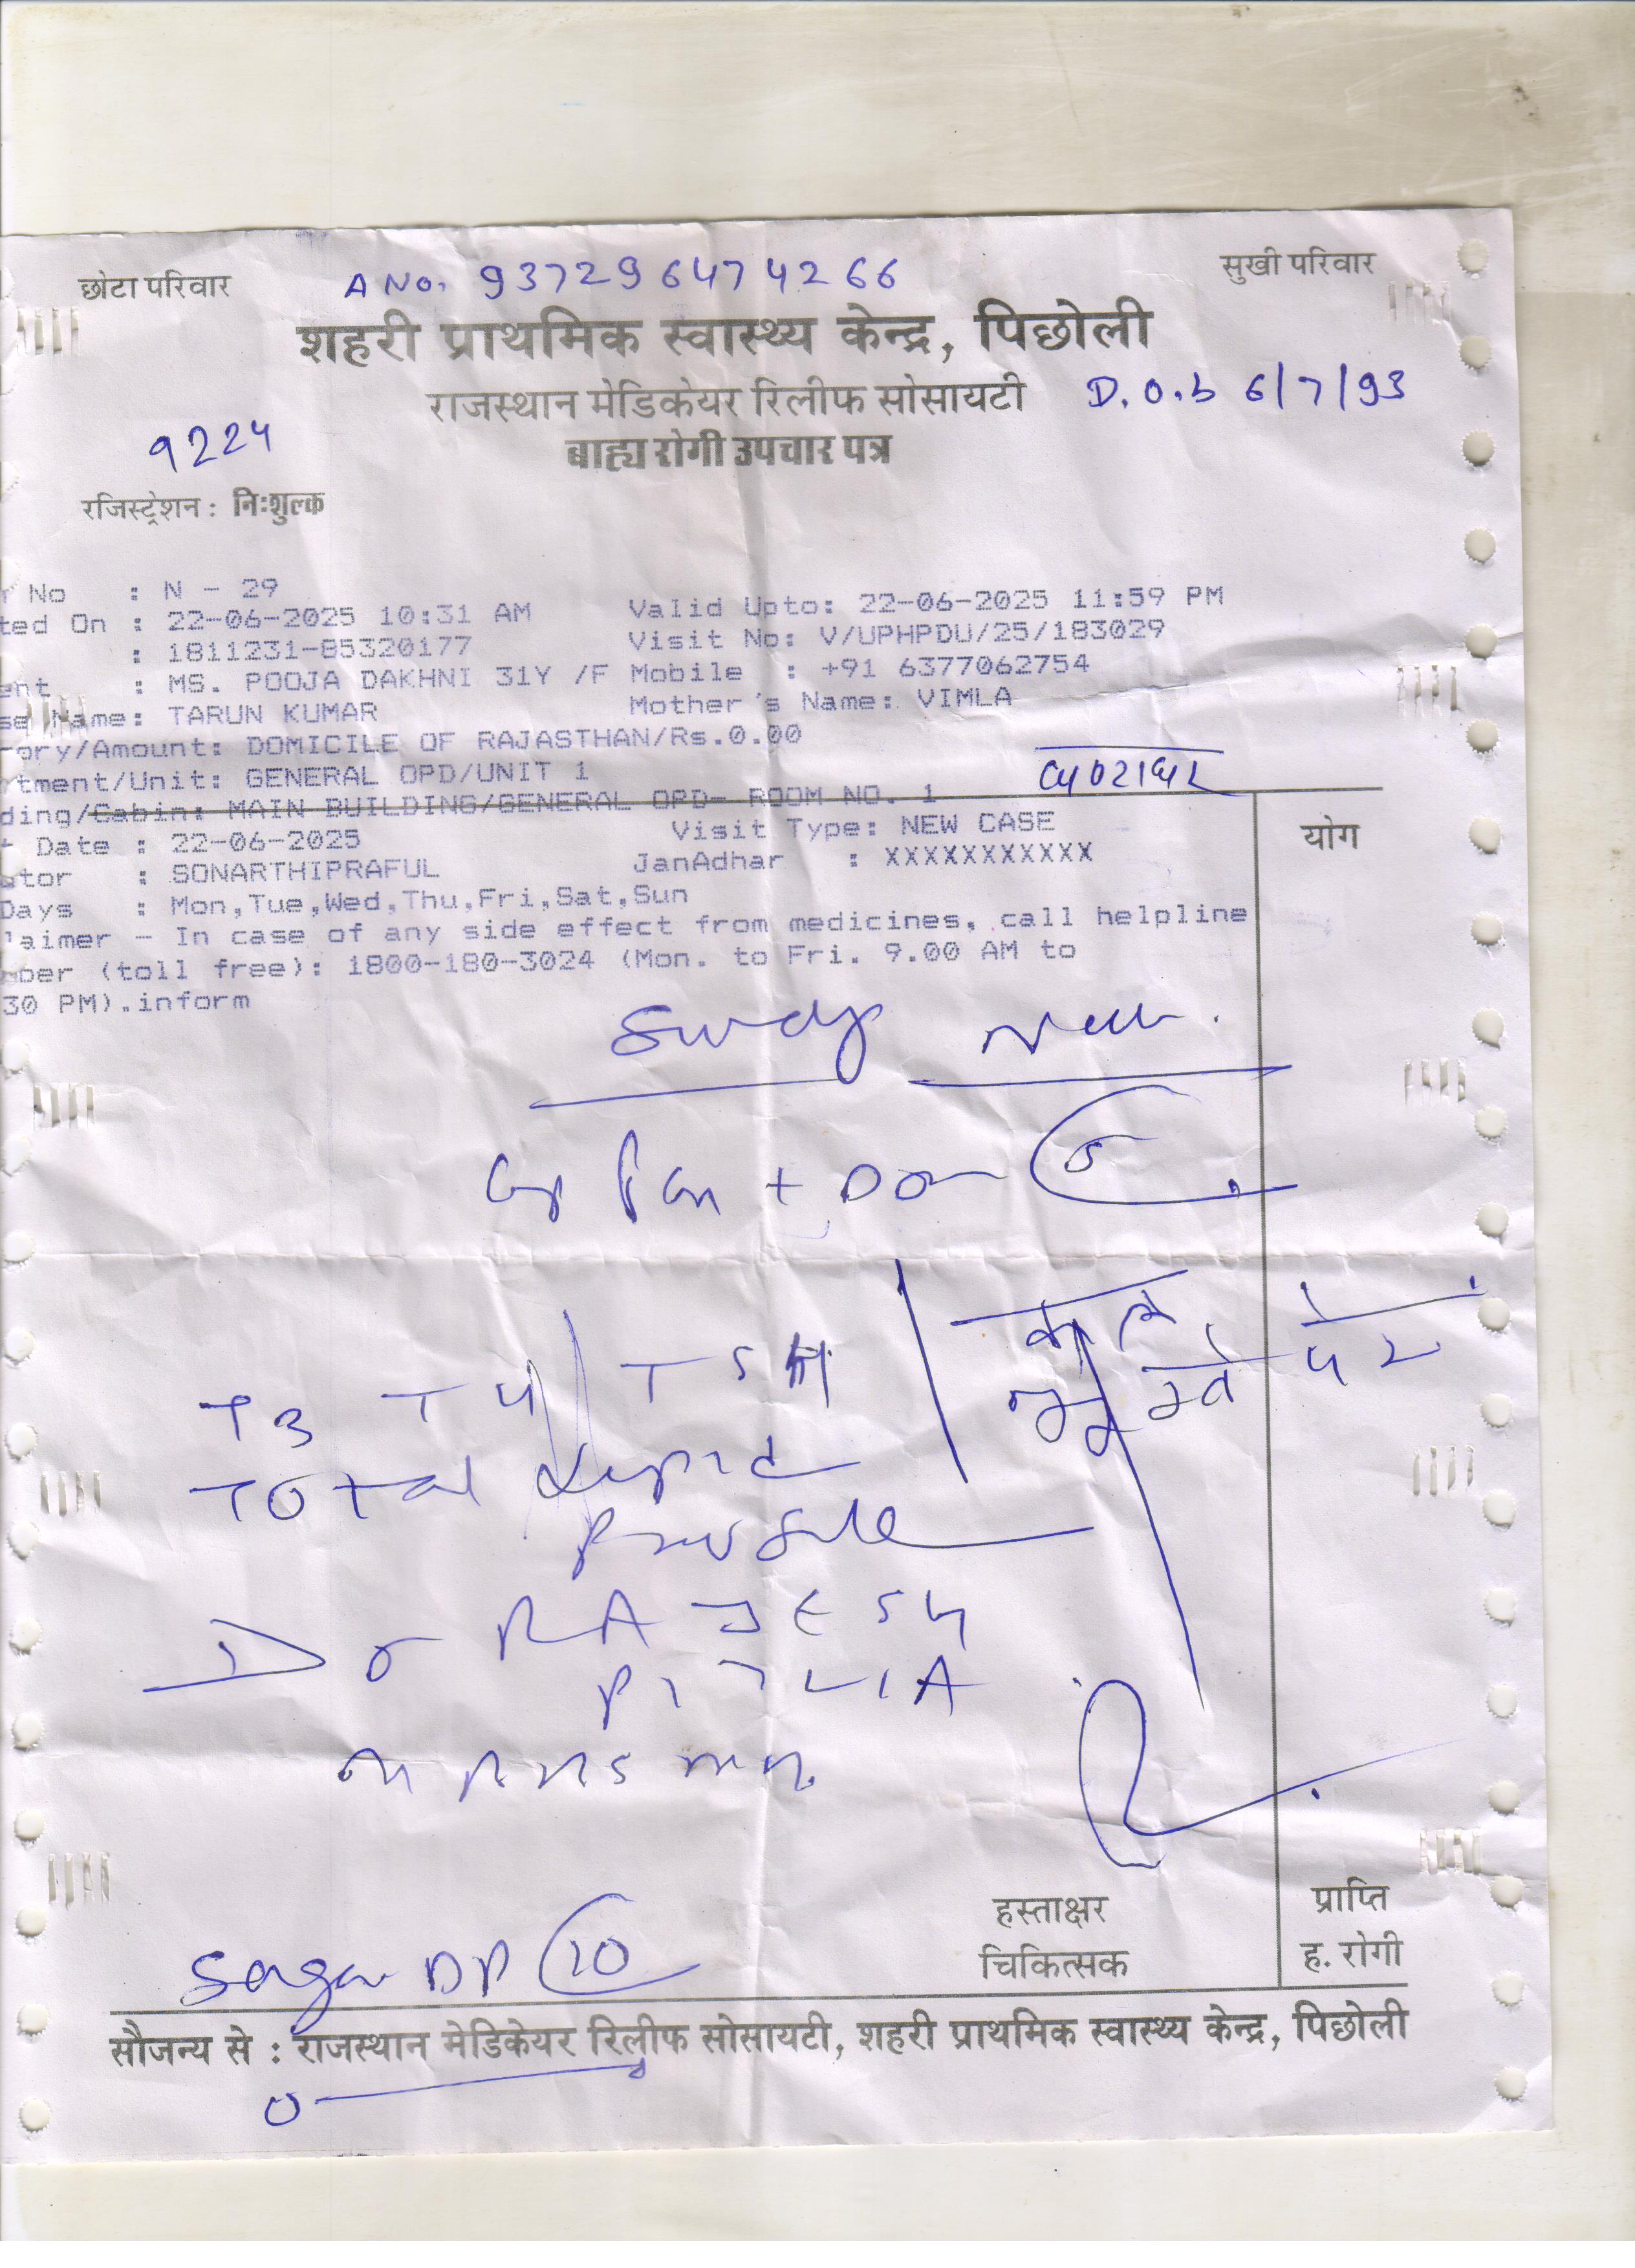 छोटा परिवार
A No. 937296474266
सुखी परिवार
शहरी प्राथमिक स्वास्थ्य केन्द्र, पिछोली
राजस्थान मेडिकेयर रिलीफ सोसायटी
D.O.b 6/7/93
9224
बाह्य रोगी उपचार पत्र
रजिस्ट्रेशन : निःशुल्क
No : N - 29
ted On : 22-06-2025 10:31 AM Valid Upto: 22-06-2025 11:59 PM
: 1811231-85320177 Visit No: V/UPHPDU/25/183029
ent : MS. POOJA DAKHNI 31Y /F Mobile : +91 6377062754
se Name: TARUN KUMAR Mother's Name: VIMLA
ory/Amount: DOMICILE OF RAJASTHAN/Rs.0.00
rtment/Unit: GENERAL OPD/UNIT 1
ding/Cabin: MAIN BUILDING/GENERAL OPD- ROOM NO. 1
Date : 22-06-2025 Visit Type: NEW CASE
योग
ator : SONARTHIPRAFUL JanAdhar : XXXXXXXXXXX
Days : Mon,Tue,Wed,Thu,Fri,Sat,Sun
laimer - In case of any side effect from medicines, call helpline
ber (toll free): 1800-180-3024 (Mon. to Fri. 9.00 AM to
30 PM).inform
Cap Pan + Dom 5
T3 T4 TSH
Total Lipid
Profile
Dr RAJESH
10
हस्ताक्षर
चिकित्सक
प्राप्ति
ह. रोगी
सौजन्य से : राजस्थान मेडिकेयर रिलीफ सोसायटी, शहरी प्राथमिक स्वास्थ्य केन्द्र, पिछोली